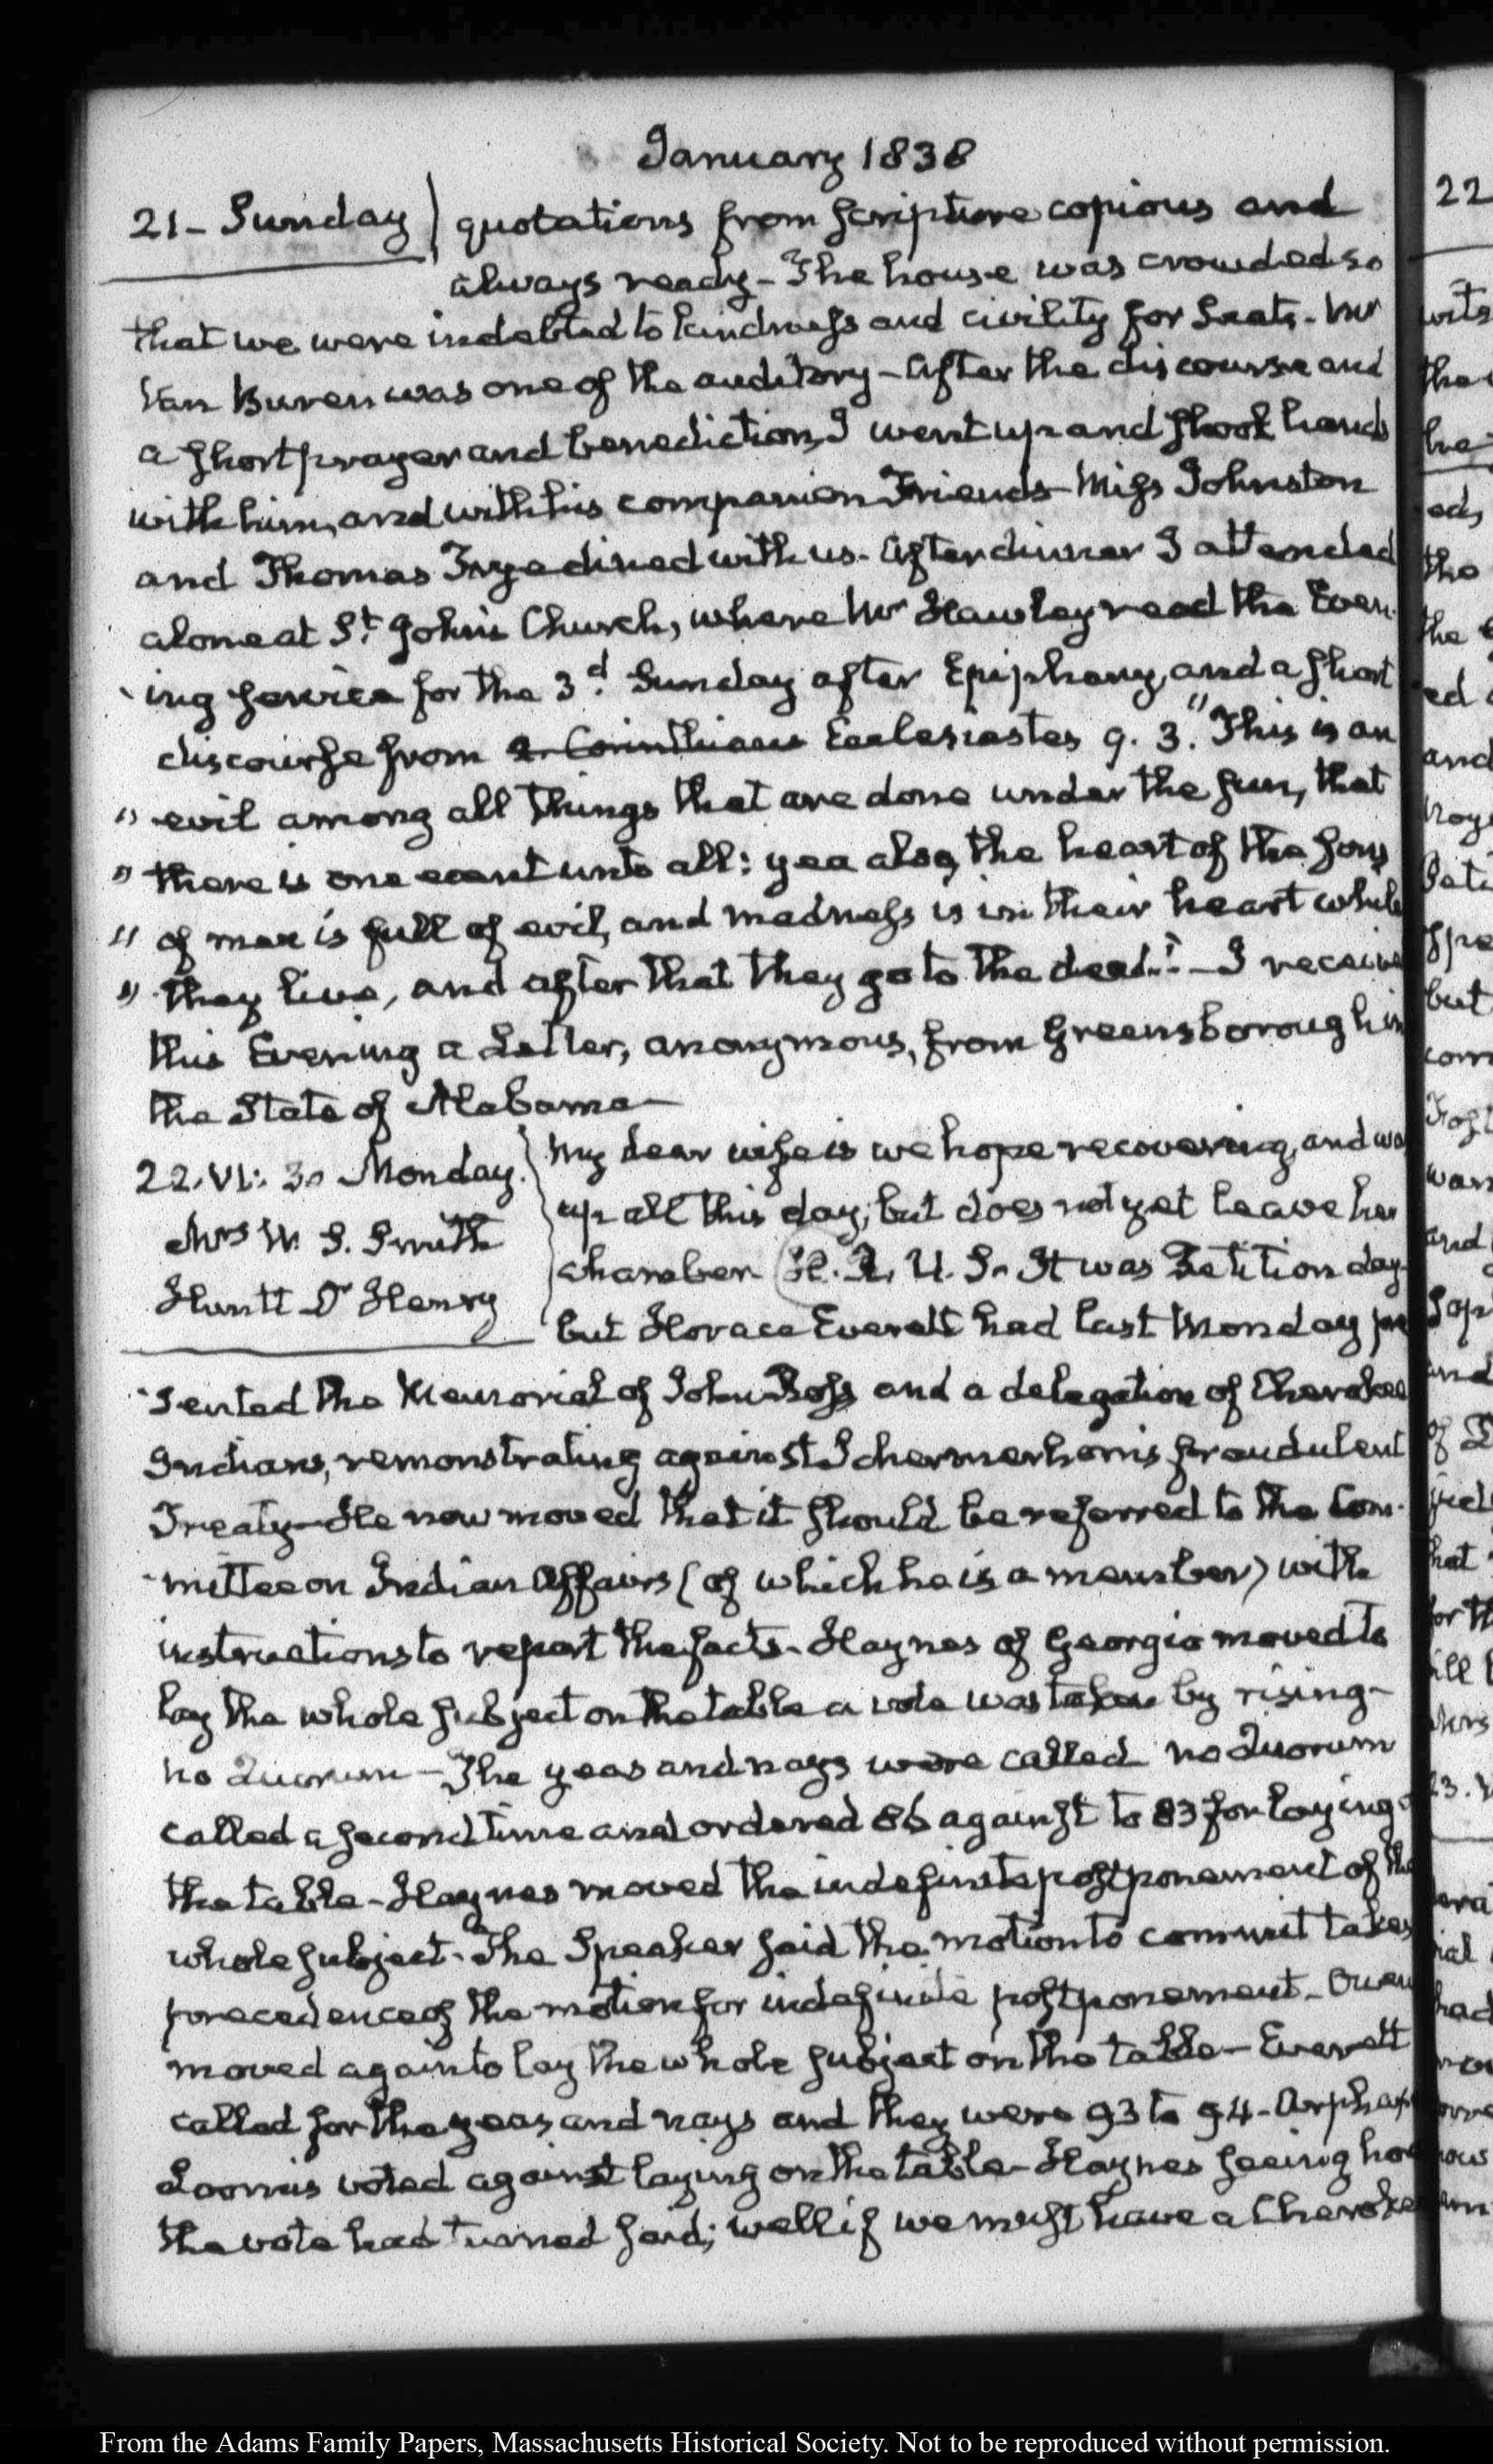 January 1838
21- Sunday) quotations from Scripture copious and
always ready - The house was crowded so
that we were indebted to kindness and civility for Seats - Mr
Van Buren was one of the auditory - After the discourse and
a short prayer and benediction, I went up and shook hands
with him, and with his companion Friends - Miss Johnston
and Thomas Frye dined with us. After dinner I attended
alone at St. John's Church, where Mr Hawley read the Even-
ing service for the 3d. Sunday after Epiphany, and a short
discourse from 2. Corinthians Ecclesiastes 9. 3. "This is an
" evil among all things that are done under the sun, that
" there is one event unto all: yea also, the heart of the sons
" of men is full of evil, and madness is in their heart while
" they live, and after that they go to the dead." - I receive
this Evening a Letter, anonymous, from Greensborough in
the State of Alabama -
22. VI: 30 Monday.
Mrs W. S. Smith
Huntt Dr Henry
My dear wife is we hope recovering, and wa
up all this day; but does not yet leave her
chamber - H. R. U. S. It was Petition day
but Horace Everett had last Monday pre
sented the Memorial of John Ross and a delegation of Cherokee
Indians, remonstrating against Schermerhorn's fraudulent
Treaty - He now moved that it should be referred to the Com-
mittee on Indian Affairs (of which he is a member) with
instructions to report the facts - Haynes of Georgia moved to
lay the whole subject on the table a vote was taken by rising -
no Quorum - The yeas and nays were called no Quorum
called a second time and ordered 86 against to 83 for laying
the table - Haynes moved the indefinite postponement of the
whole subject. The Speaker said the motion to commit takes
precedence of the motion for indefinite postponement - Owen
moved again to lay the whole subject on the table - Everett
called for the yeas and nays and they were 93 to 94 - Arphax
Loomis voted against laying on the table - Haynes seeing how
the vote had turned said; well if we must have a Cherokee
22
From the Adams Family Papers, Massachusetts Historical Society. Not to be reproduced without permission.